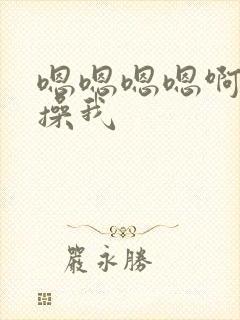 嗯嗯嗯嗯啊
操我
嚴永勝